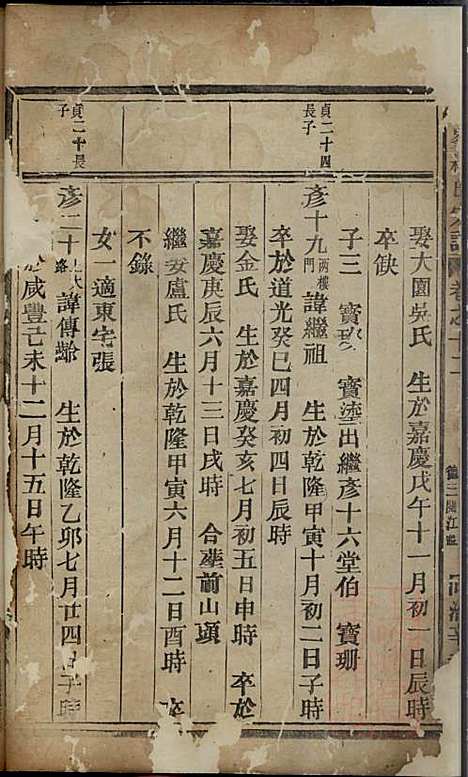 娶大園吳氏 生於嘉慶戊午十一月初一日辰時
卒缺
子三 寶 寶塗出繼彥十六堂伯 寶珊
貞二十四
長子
彥十九兩樓門諱繼祖 生於乾隆甲寅十月初二日子時
卒於道光癸巳四月初四日辰時
娶金氏 生於嘉慶癸亥七月初五日申時 卒於
嘉慶庚辰六月十三日戌時 合塟前山頭
繼娶盧氏 生於乾隆甲寅六月十二日酉時 卒
不錄
女一適東宅張
貞二十長
子
彥二十路諱傳 生於乾隆乙卯七月廿四日子時
於咸豐己未十二月十五日午時
氏宗譜 卷之十二